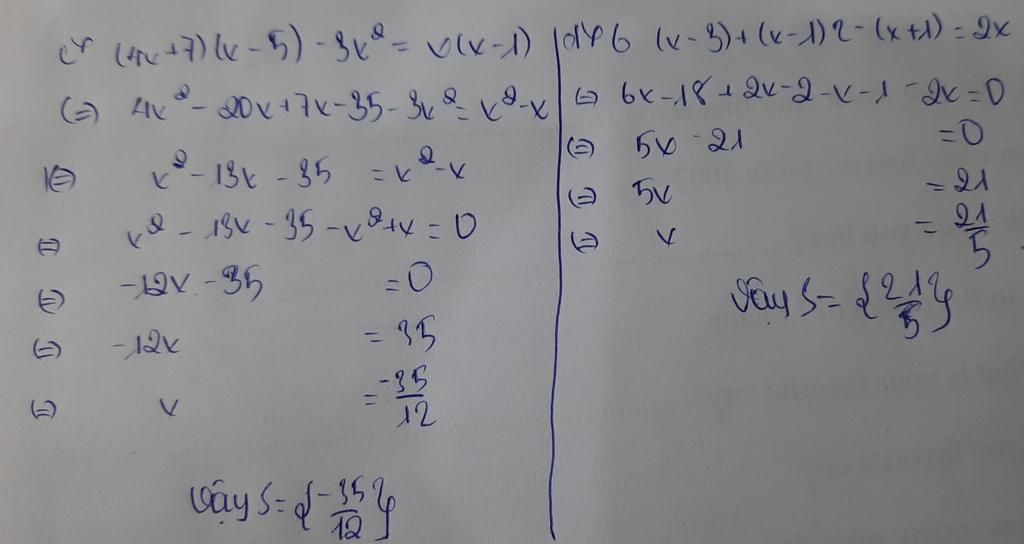 c) (4x+7)(x-5) - 3x² = x(x-1)
(=) 4x² - 20x + 7x - 35 - 3x² = x² - x
(=) x² - 13x - 35 = x² - x
(=) x² - 13x - 35 - x² + x = 0
(=) -12x - 35 = 0
(=) -12x = 35
(=) x = -35/12
Vậy S = {-35/12}
d) 6 (x-3) + (x-1)2 - (x+1) = 2x
(=) 6x - 18 + 2x - 2 - x - 1 - 2x = 0
(=) 5x - 21 = 0
(=) 5x = 21
(=) x = 21/5
Vậy S = {21/5}